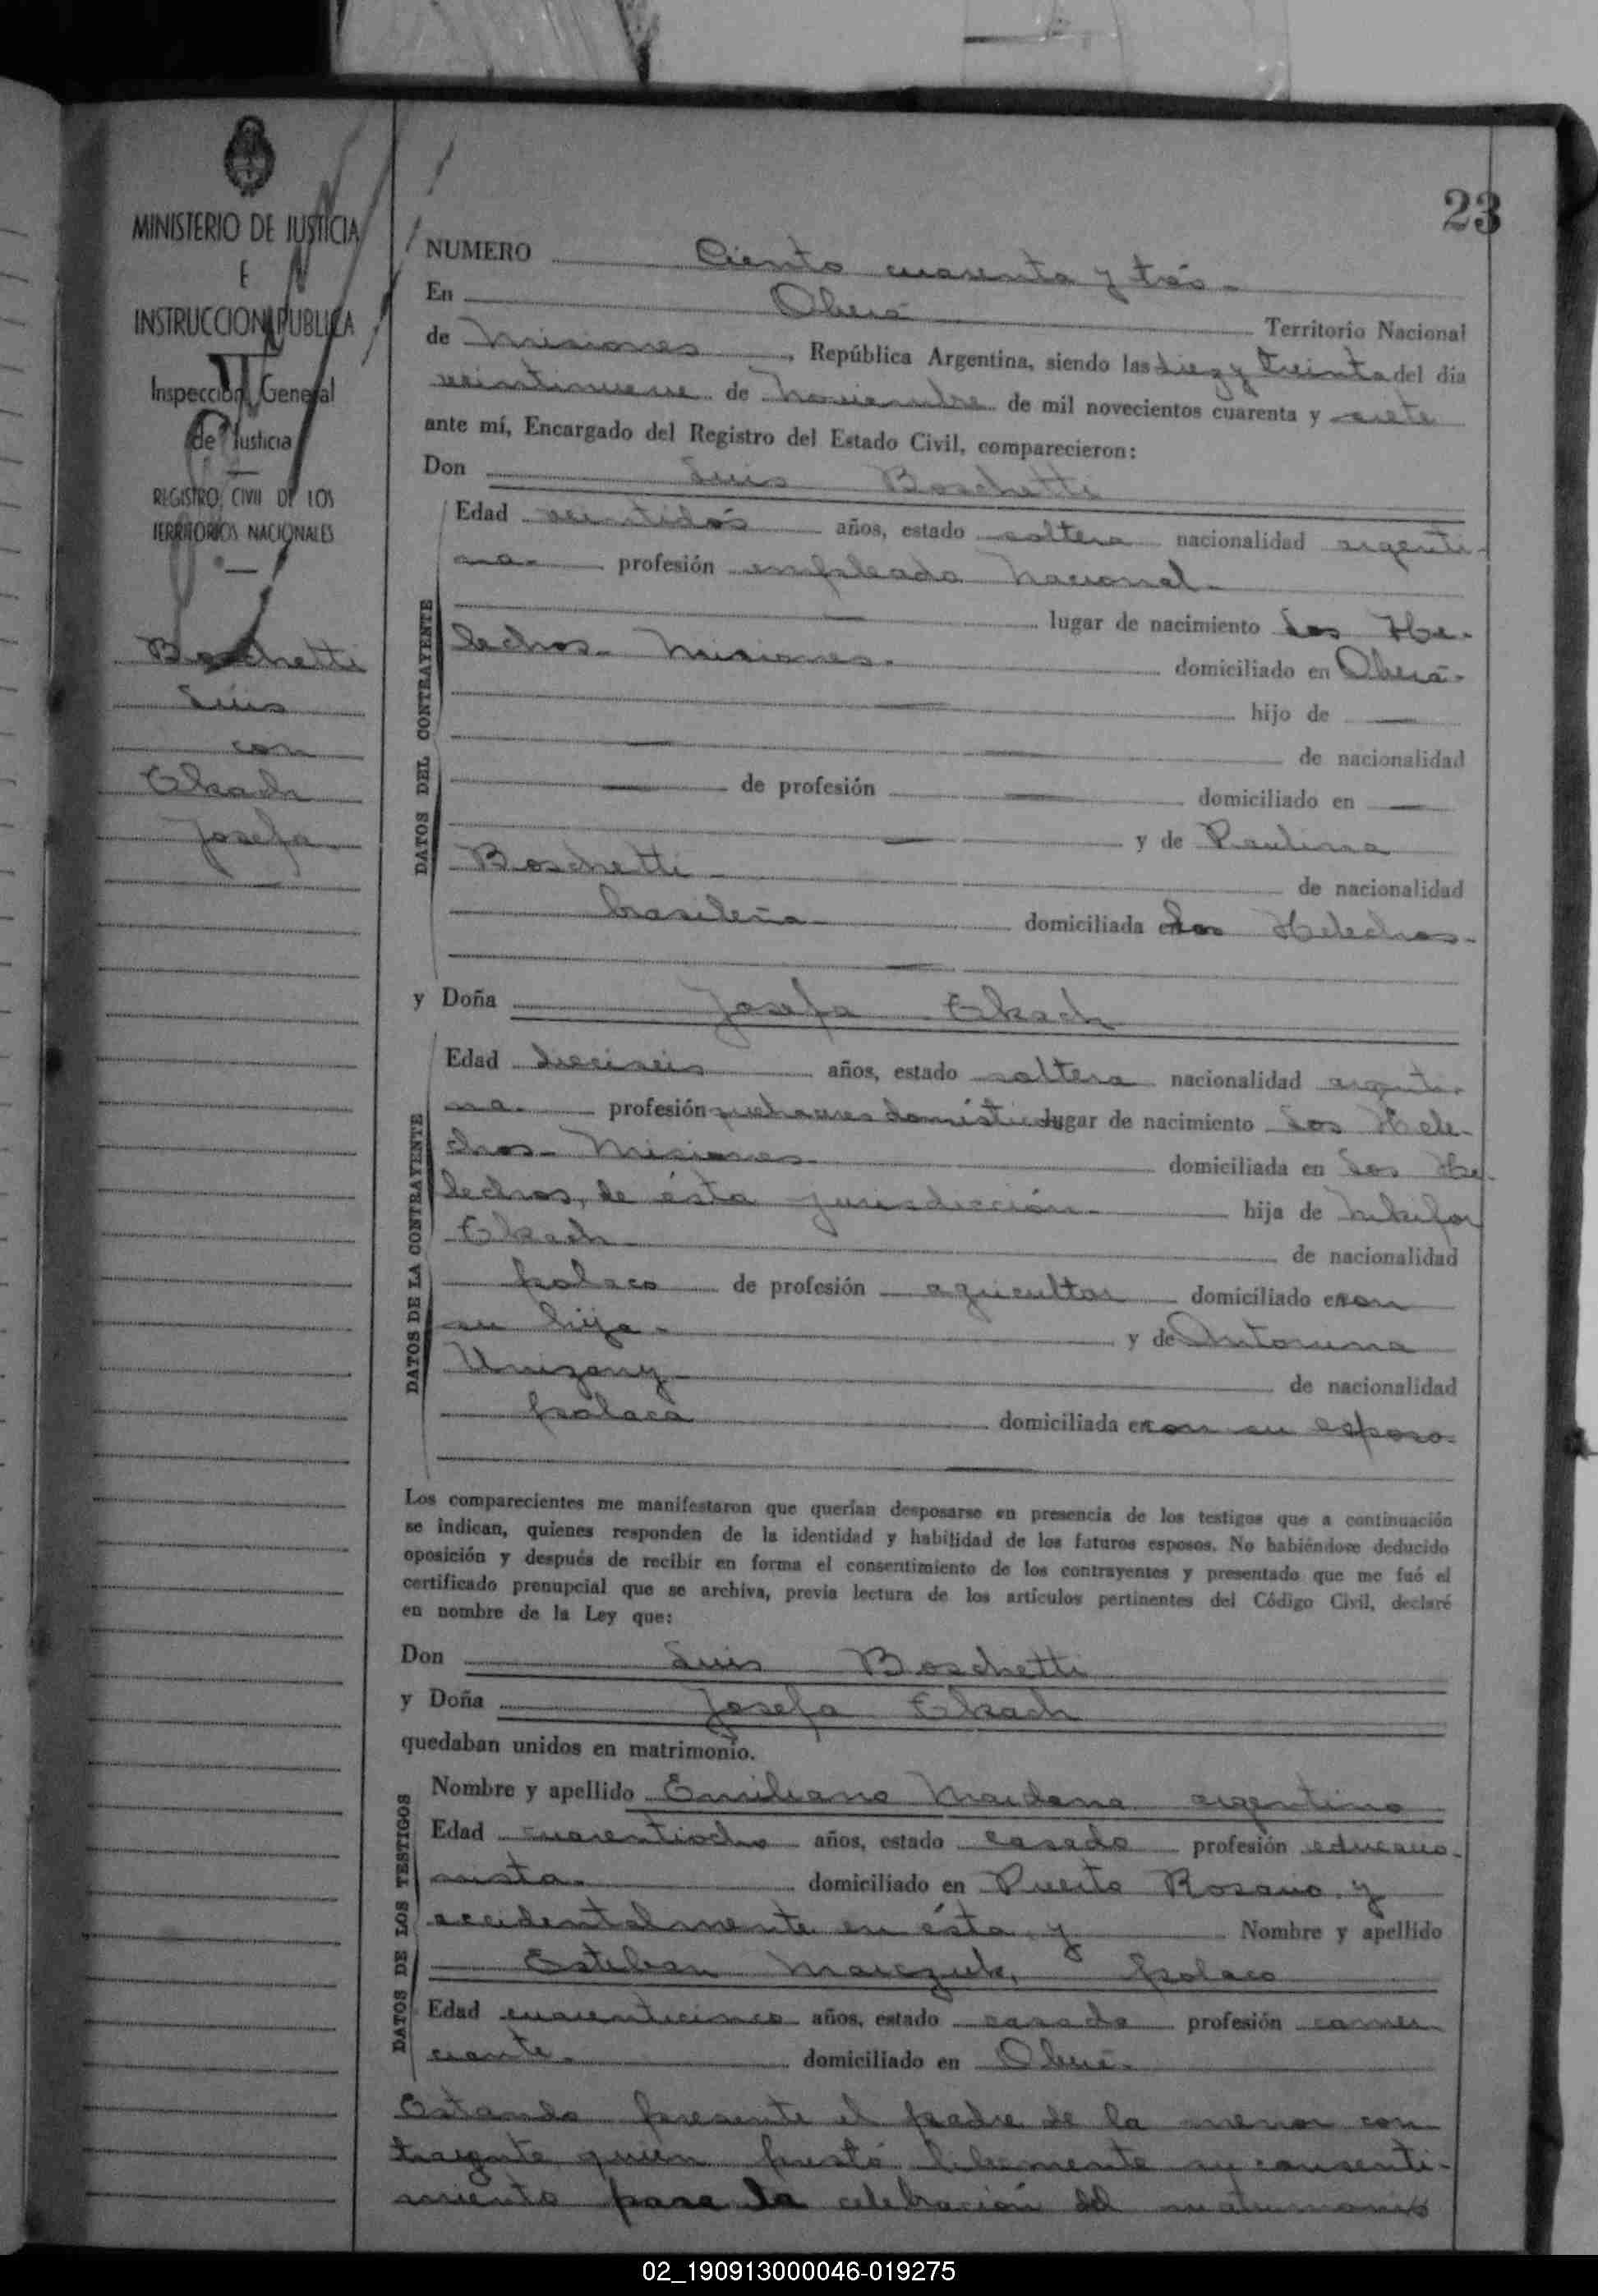 23
MINISTERIO DE JUSTICIA
E
INSTRUCCION PUBLICA
Inspección General
de Justicia
REGISTRO CIVIL DE LOS
TERRITORIOS NACIONALES
Boschetti
Luis
con
Tkach
Josefa
NUMERO Ciento cuarenta y trés
En Oberá Territorio Nacional
de Misiones, República Argentina, siendo las diez y treinta del día
veintinueve de Noviembre de mil novecientos cuarenta y siete
ante mí, Encargado del Registro del Estado Civil, comparecieron:
Don Luis Boschetti
DATOS DEL CONTRAYENTE
Edad veintidós años, estado soltero nacionalidad argenti-
na.- profesión empleado Nacional.-
lugar de nacimiento Los He-
lechos- Misiones.- domiciliado en Oberá.-
hijo de
de nacionalidad
de profesión domiciliado en
y de Paulina
Boschetti de nacionalidad
brasileña domiciliada en Los Helechos.-
y Doña Josefa Tkach
DATOS DE LA CONTRAYENTE
Edad dieciseis años, estado soltera nacionalidad argenti-
na.- profesión quehaceres domésticos lugar de nacimiento Los Hele-
chos- Misiones domiciliada en Los He-
lechos, de ésta jurisdicción.- hija de Nikifor
Tkach de nacionalidad
polaco de profesión agricultor domiciliado en con
su hija.- y de Antonina
de nacionalidad
polaca domiciliada en con su esposo.-
Los comparecientes me manifestaron que querían desposarse en presencia de los testigos que a continuación
se indican, quienes responden de la identidad y habilidad de los futuros esposos. No habiéndose deducido
oposición y después de recibir en forma el consentimiento de los contrayentes y presentado que me fué el
certificado prenupcial que se archiva, previa lectura de los artículos pertinentes del Código Civil, declaré
en nombre de la Ley que:
Don Luis Boschetti
y Doña Josefa Tkach
quedaban unidos en matrimonio.
DATOS DE LOS TESTIGOS
Nombre y apellido Emiliano Maidana argentino
Edad cuarentiocho años, estado casado profesión educacio-
nista.- domiciliado en Puerto Rosario y
accidentalmente en ésta, y Nombre y apellido
Esteban Marczuk, polaco
Edad cuarenticinco años, estado casado profesión comer
ciante.- domiciliado en Oberá.-
Estando presente el padre de la menor con
trayente quien prestó libremente su consenti-
miento para la celebración del matrimonio
02_190913000046-019275